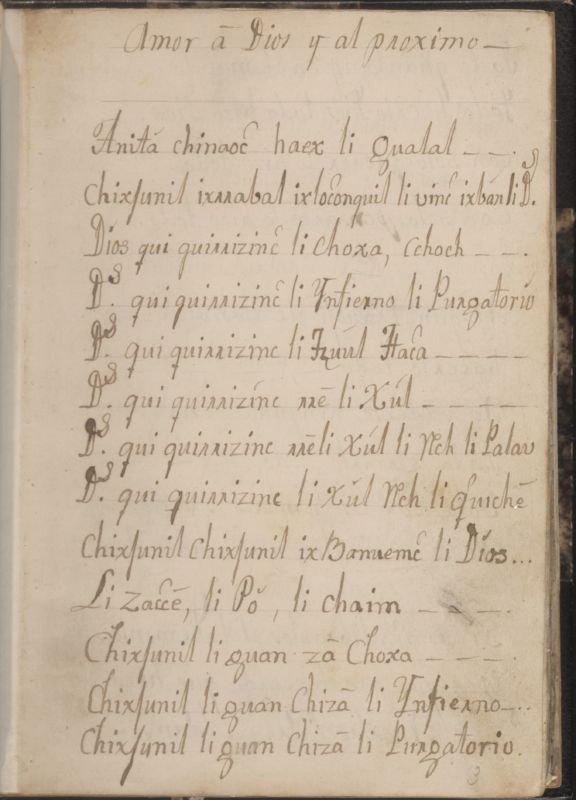 Amor ā Dios y al proximo —
Anitā chinaoc̄ haex li gualal — — .
Chixſunil ixrrabal ixloc̄onquil li vinc̄ ixbān li D.s
Dios qui quirrizinc̄ li Choxa, Cchoch — — .
D.s qui quirrizinc̄ li Ynfierno li Purgatorio
D.s qui quirrizinc li
D.s qui quirrizinc rrē li Xúl — — — —
D.s qui quirrizinc rrē li Xúl li Nch li Palau
D.s qui quirrizinc li Xúl Nch li Quichē
Chixſunil Chixſunil ix Banuemc̄ li Dios...
Li Zacc̄ē, li Pŏ, li chaim — — — .
Chixſunil li guan zā Choxa — — — .
Chixſunil li guan Chizā li Ynfierno —..
Chixſunil li guan Chizā li Purgatorio.
3